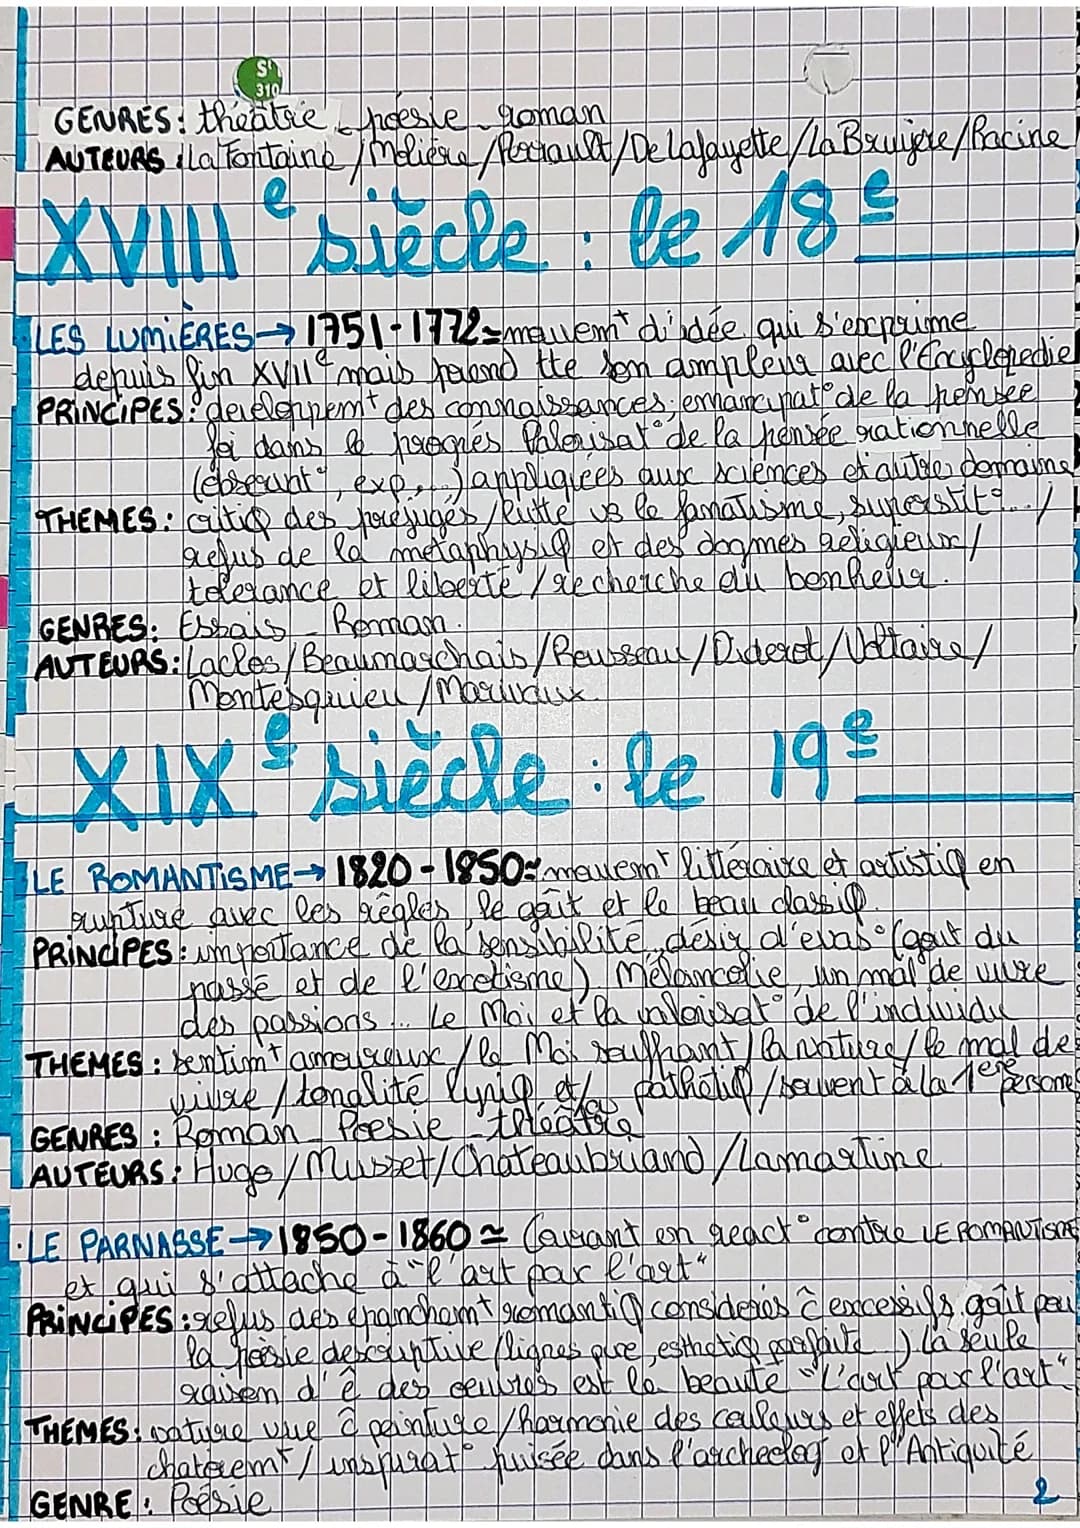 S
310
GENRES: théâtre - poésie - roman
AUTEURS: La Fontaine / Molière / Perrault / De Lafayette / La Bruyère / Racine
XVIIIe siècle : le 18e
LES LUMIÈRES → 1751-1772 = mouvemt d'idée qui s'exprime
depuis fin XVIIe mais prend tte son ampleur avec l'Encyclopedie
PRINCIPES: developpemt des connaissances, emancipat° de la pensée
foi dans le progrés Valorisat° de la pensée rationnelle
exp...) appliquées aux sciences et autre domaine
THEMES: critiq des préjugés / lutte vs le fanatisme, superstit°... /
refus de la métaphysiq et des dogmes religieux /
tolérance et liberté / recherche du bonheur.
GENRES: Essais - Roman.
AUTEURS: Laclos / Beaumarchais / Rousseau / Diderot / Voltaire /
Montesquieu / Marivaux
XIXe siècle : le 19e
LE ROMANTISME → 1820-1850 ≈ mouvemt littéraire et artistiq en
rupture avec les règles, le goût et le beau classiq.
PRINCIPES: importance de la sensibilité, désir d'évas° (gout du
passé et de l'exotisme) Mélancolie, un mal de vivre
des passions... Le Moi et la valorisat° de l'individu
THEMES: sentimt amoureux / le Moi souffrant / la nature / le mal de
vivre / tonalité lyriq et/ou pathétiq / souvent à la 1ere person
GENRES: Roman - Poesie - théâtre
AUTEURS: Hugo / Musset / Chateaubriand / Lamartine
·LE PARNASSE → 1850-1860 ≃ Courant en react° contre LE ROMANTISME
et qui s'attache à "l'art par l'art"
PRINCIPES: refus des épanchemt romantiq considérés c̑ excessifs, goût pour
la poésie descriptive (lignes pure, esthétiq parfaite) La seule
raison d'ê des oeuvres est la beauté "L'art pour l'art"
THEMES: nature vue c̑ peinture / harmonie des couleurs et effets des
/ inspirat° puisée dans l'archeolog et l'Antiquité
GENRE: Poésie
2